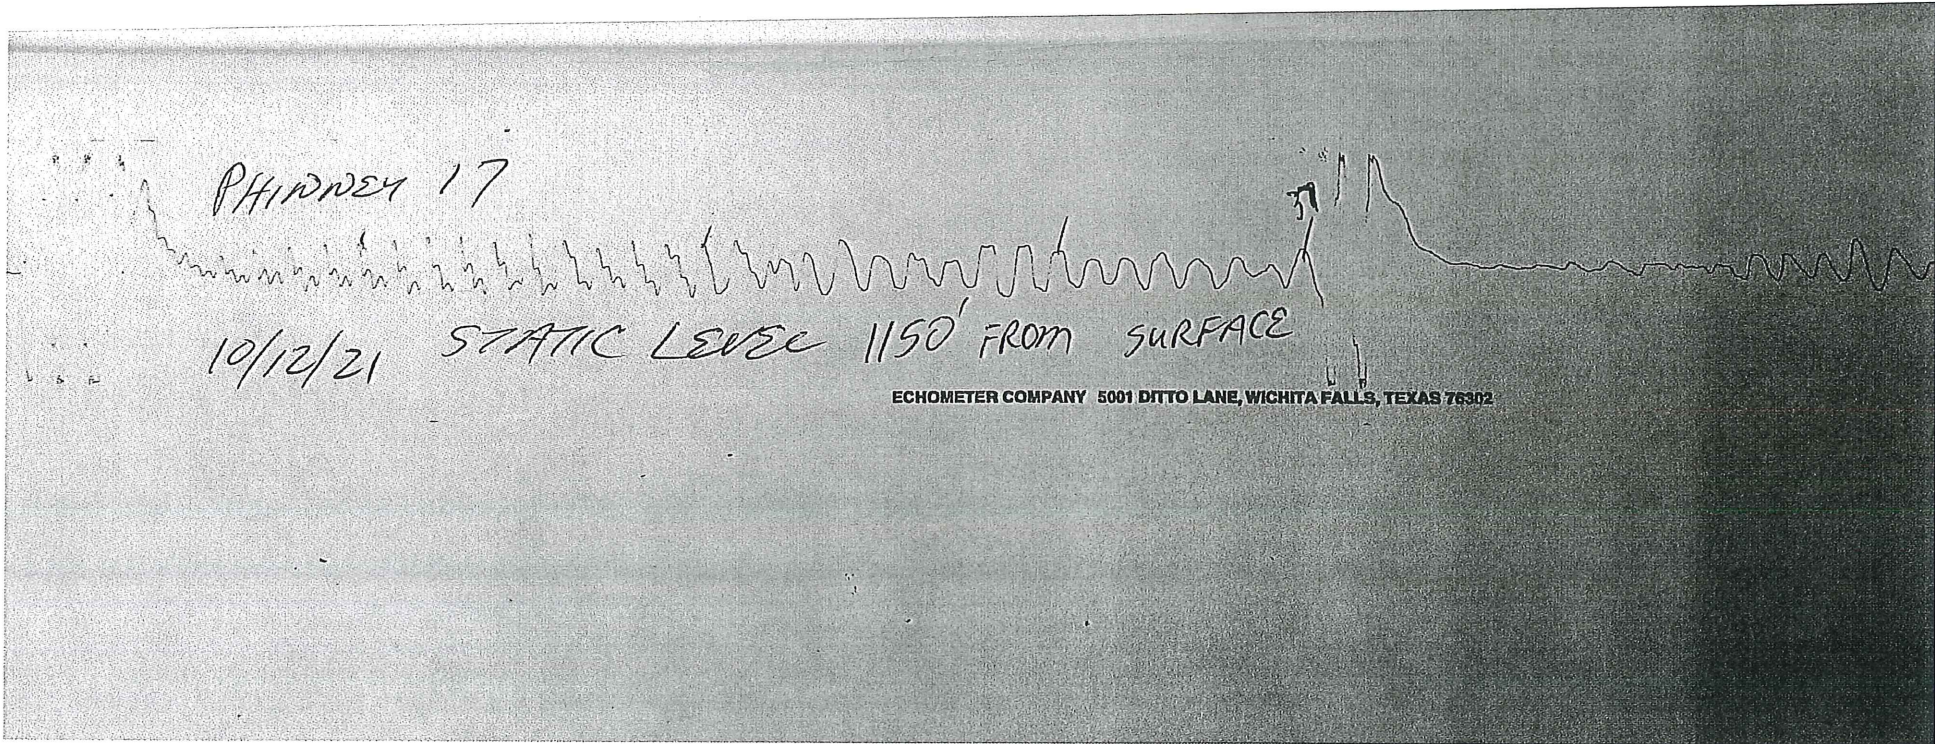 PHINNEY 17
37
10/12/21 STATIC LEVEL 1150' FROM SURFACE
ECHOMETER COMPANY 5001 DITTO LANE, WICHITA FALLS, TEXAS 76302